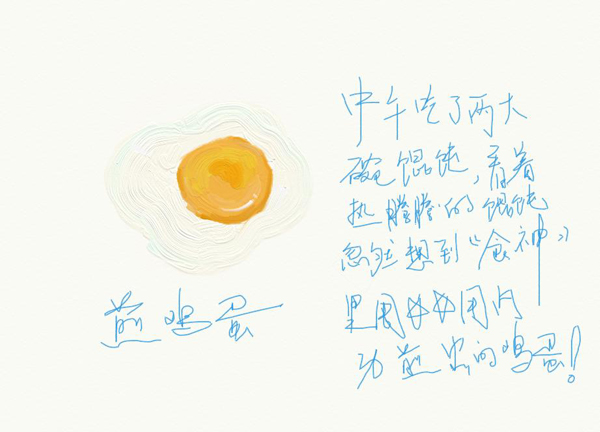 煎鸡蛋
中午吃了两大
碗馄饨,看着
热腾腾的馄饨
忽然想到“食神”
里用用内
功煎出的鸡蛋!